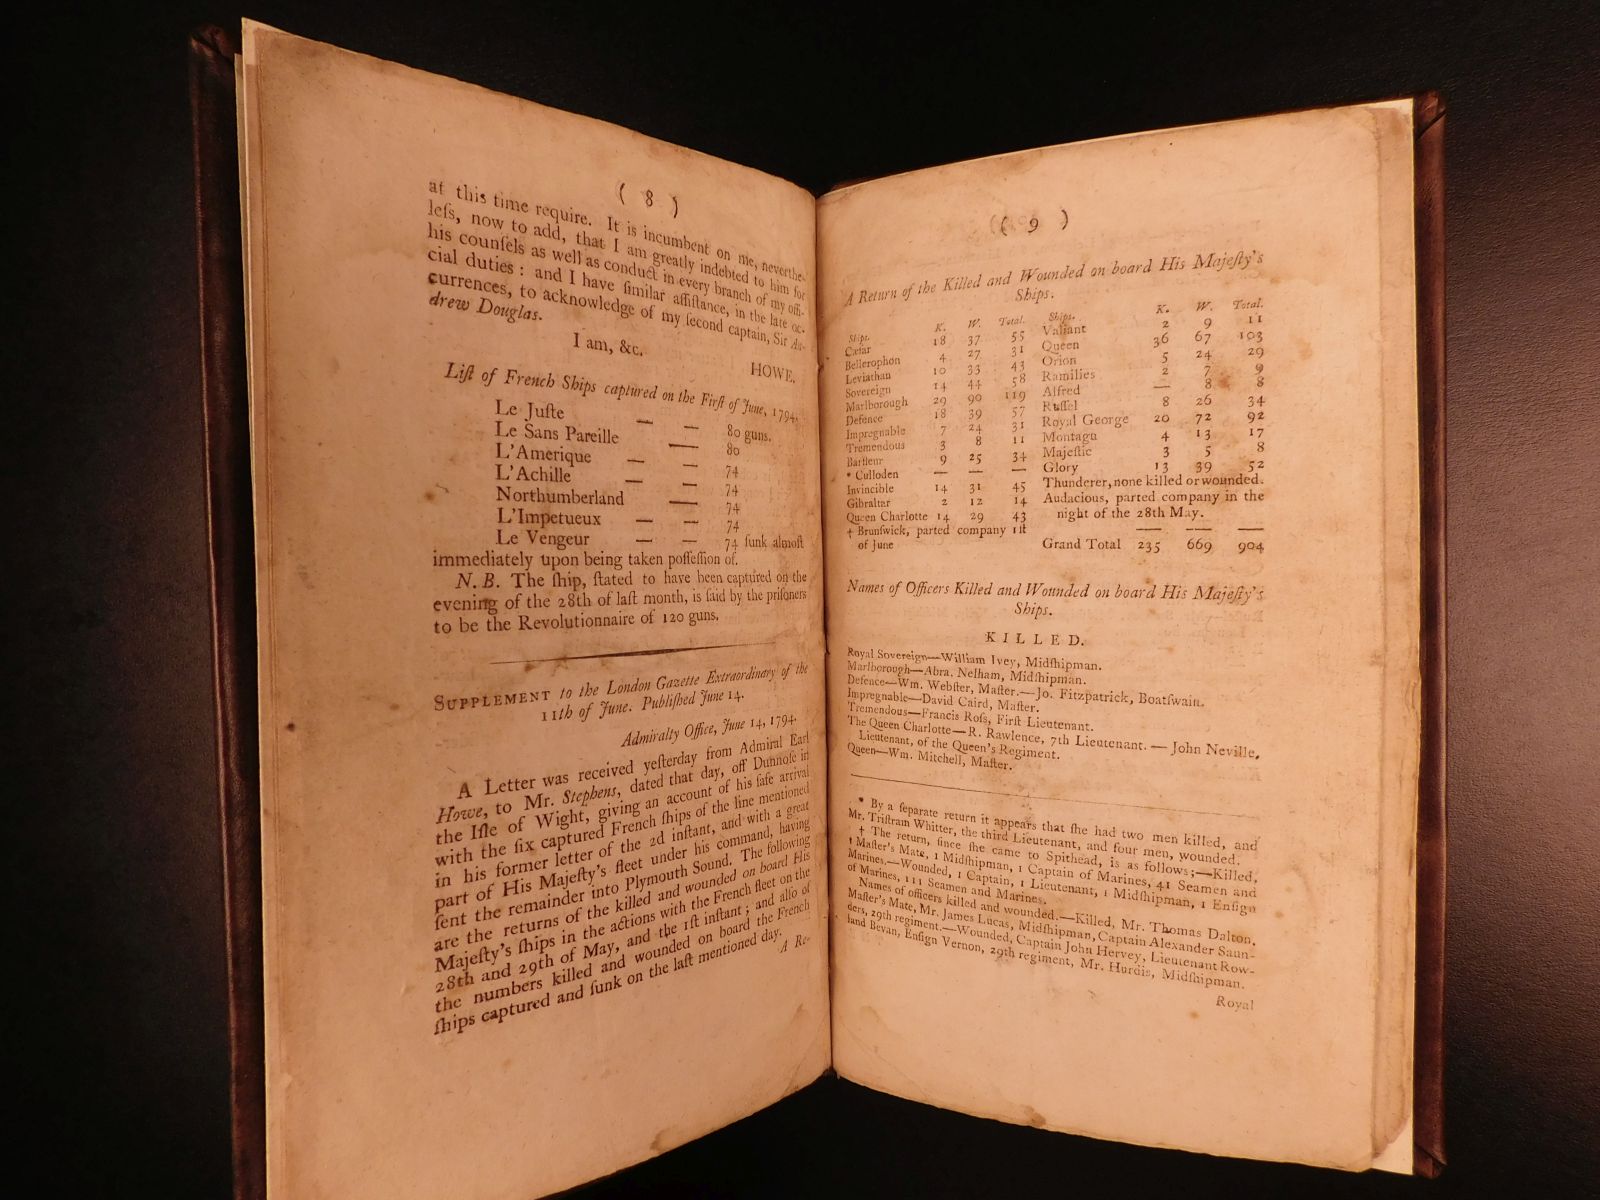 ( 8 )
at this time require. It is incumbent on me, neverthe-
leſs, now to add, that I am greatly indebted to him for
his counſels as well as conduct in every branch of my offi-
cial duties: and I have ſimilar aſſiſtance, in the late oc-
currences, to acknowledge of my ſecond captain, Sir An-
drew Douglas.
I am, &c.
HOWE.
Liſt of French Ships captured on the Firſt of June, 1794.
Le Juſte — — 80 guns.
Le Sans Pareille — 80
L'Amerique — — 74
L'Achille — — 74
Northumberland — 74
L'Impetueux — — 74
Le Vengeur — — 74 ſunk almoſt
immediately upon being taken poſſeſſion of.
N. B. The ſhip, ſtated to have been captured on the
evening of the 28th of laſt month, is ſaid by the priſoners
to be the Revolutionnaire of 120 guns.
SUPPLEMENT to the London Gazette Extraordinary of the
11th of June. Publiſhed June 14.
Admiralty Office, June 14, 1794.
A Letter was received yeſterday from Admiral Earl
Howe, to Mr. Stephens, dated that day, off Dunnoſe in
the Iſle of Wight, giving an account of his ſafe arrival
with the ſix captured French ſhips of the line mentioned
in his former letter of the 2d inſtant, and with a great
part of His Majeſty's fleet under his command, having
ſent the remainder into Plymouth Sound. The following
are the returns of the killed and wounded on board His
Majeſty's ſhips in the actions with the French fleet on the
28th and 29th of May, and the 1ſt inſtant; and alſo of
the numbers killed and wounded on board the French
ſhips captured and ſunk on the laſt mentioned day.
A Re-
( 9 )
A Return of the Killed and Wounded on board His Majeſty's
Ships.
Ships. K. W. Total.
Cæſar 18 37 55
Bellerophon 4 27 31
Leviathan 10 33 43
Sovereign 14 44 58
Marlborough 29 90 119
Defence 18 39 57
Impregnable 7 24 31
Tremendous 3 8 11
Barfleur 9 25 34
* Culloden — — —
Invincible 14 31 45
Gibraltar 2 12 14
Queen Charlotte 14 29 43
† Brunſwick, parted company 1ſt
of June
Ships. K. W. Total.
Valiant 2 9 11
Queen 36 67 103
Orion 5 24 29
Ramilies 2 7 9
Alfred — 8 8
Ruſſel 8 26 34
Royal George 20 72 92
Montagu 4 13 17
Majeſtic 3 5 8
Glory 13 39 52
Thunderer, none killed or wounded.
Audacious, parted company in the
night of the 28th May.
Grand Total 235 669 904
Names of Officers Killed and Wounded on board His Majeſty's
Ships.
KILLED.
Royal Sovereign—William Ivey, Midſhipman.
Marlborough—Abra. Nelham, Midſhipman.
Defence—Wm. Webſter, Maſter.—Jo. Fitzpatrick, Boatſwain.
Impregnable—David Caird, Maſter.
Tremendous—Francis Roſs, Firſt Lieutenant.
The Queen Charlotte—R. Rawlence, 7th Lieutenant.—John Neville,
Lieutenant, of the Queen's Regiment.
Queen—Wm. Mitchell, Maſter.
* By a ſeparate return it appears that ſhe had two men killed, and
Mr. Triſtram Whitter, the third Lieutenant, and four men, wounded.
† The return, ſince ſhe came to Spithead, is as follows;—Killed,
1 Maſter's Mate, 1 Midſhipman, 1 Captain of Marines, 41 Seamen and
Marines.—Wounded, 1 Captain, 1 Lieutenant, 1 Midſhipman, 1 Enſign
of Marines, 111 Seamen and Marines.
Names of officers killed and wounded.—Killed, Mr. Thomas Dalton,
Maſter's Mate, Mr. James Lucas, Midſhipman, Captain Alexander Saun-
ders, 29th regiment.—Wounded, Captain John Hervey, Lieutenant Row-
land Bevan, Enſign Vernon, 29th regiment, Mr. Hurdis, Midſhipman.
Royal